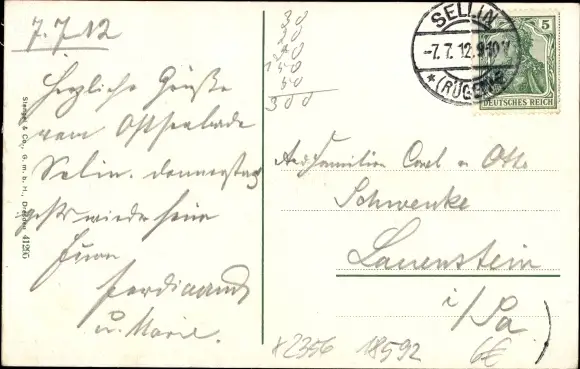 7.7.12
Herzliche Grüße
vom Ostseebade
Sellin. Donnerstag
geht's wieder heim
Eure
Ferdinand
u. Marie.
Stengel & Co., G. m. b. H., Dresden 41295
30
20
50
150
50
300
SELLIN
-7.7.12.9-10V
* (RÜGEN) *
5
DEUTSCHES REICH
Familien Carl u Otto
Schwenke
Lauenstein
i/Sa
x2356 18592 6€